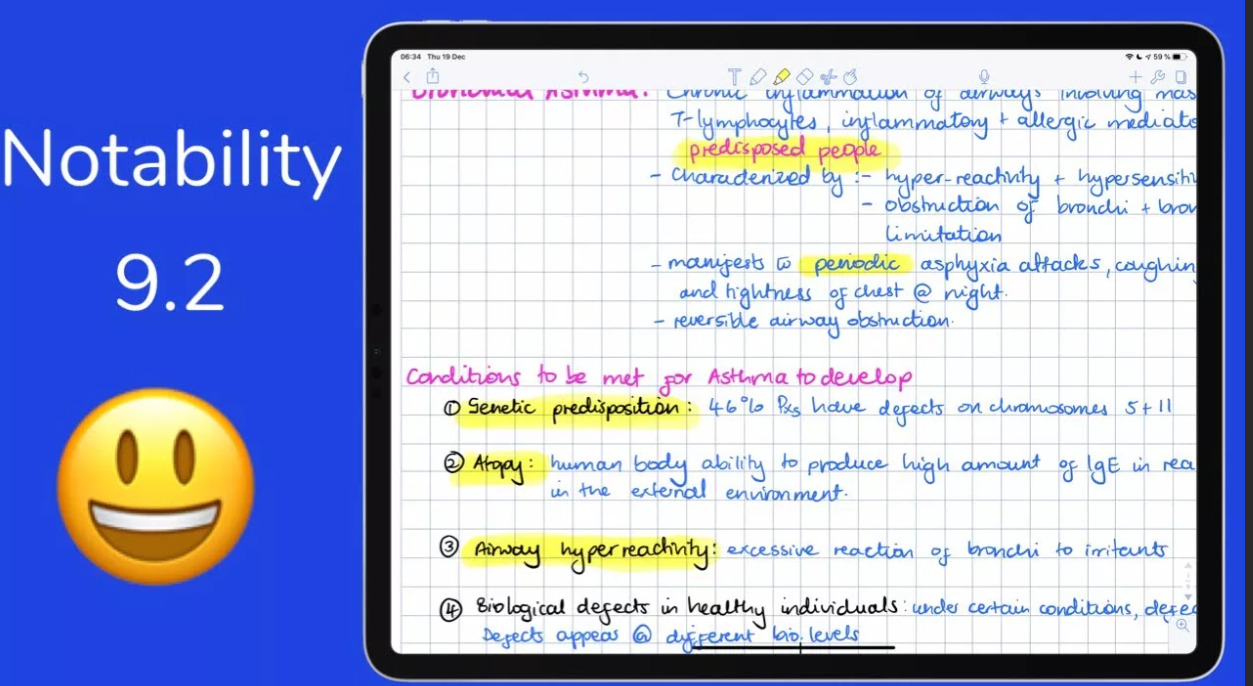 Notability
9.2
06:34 Thu 19 Dec
59%
Bronchial Asthma: Chronic inflammation of airways involving mas
T-lymphocytes, inflammatory + allergic mediato
predisposed people
- Characterized by :- hyper-reactivity + hypersensiti
- obstruction of bronchi + bron
limitation
- manifests w periodic asphyxia attacks, coughin
and tightness of chest @ night.
- reversible airway obstruction.
Conditions to be met for Asthma to develop
① Genetic predisposition: 46% Pxs have defects on chromosomes 5 + 11
② Atopy: human body ability to produce high amount of IgE in rea
in the external environment.
③ Airway hyperreactivity: excessive reaction of bronchi to irritants
④ Biological defects in healthy individuals: under certain conditions, defec
Defects appear @ different bio. levels